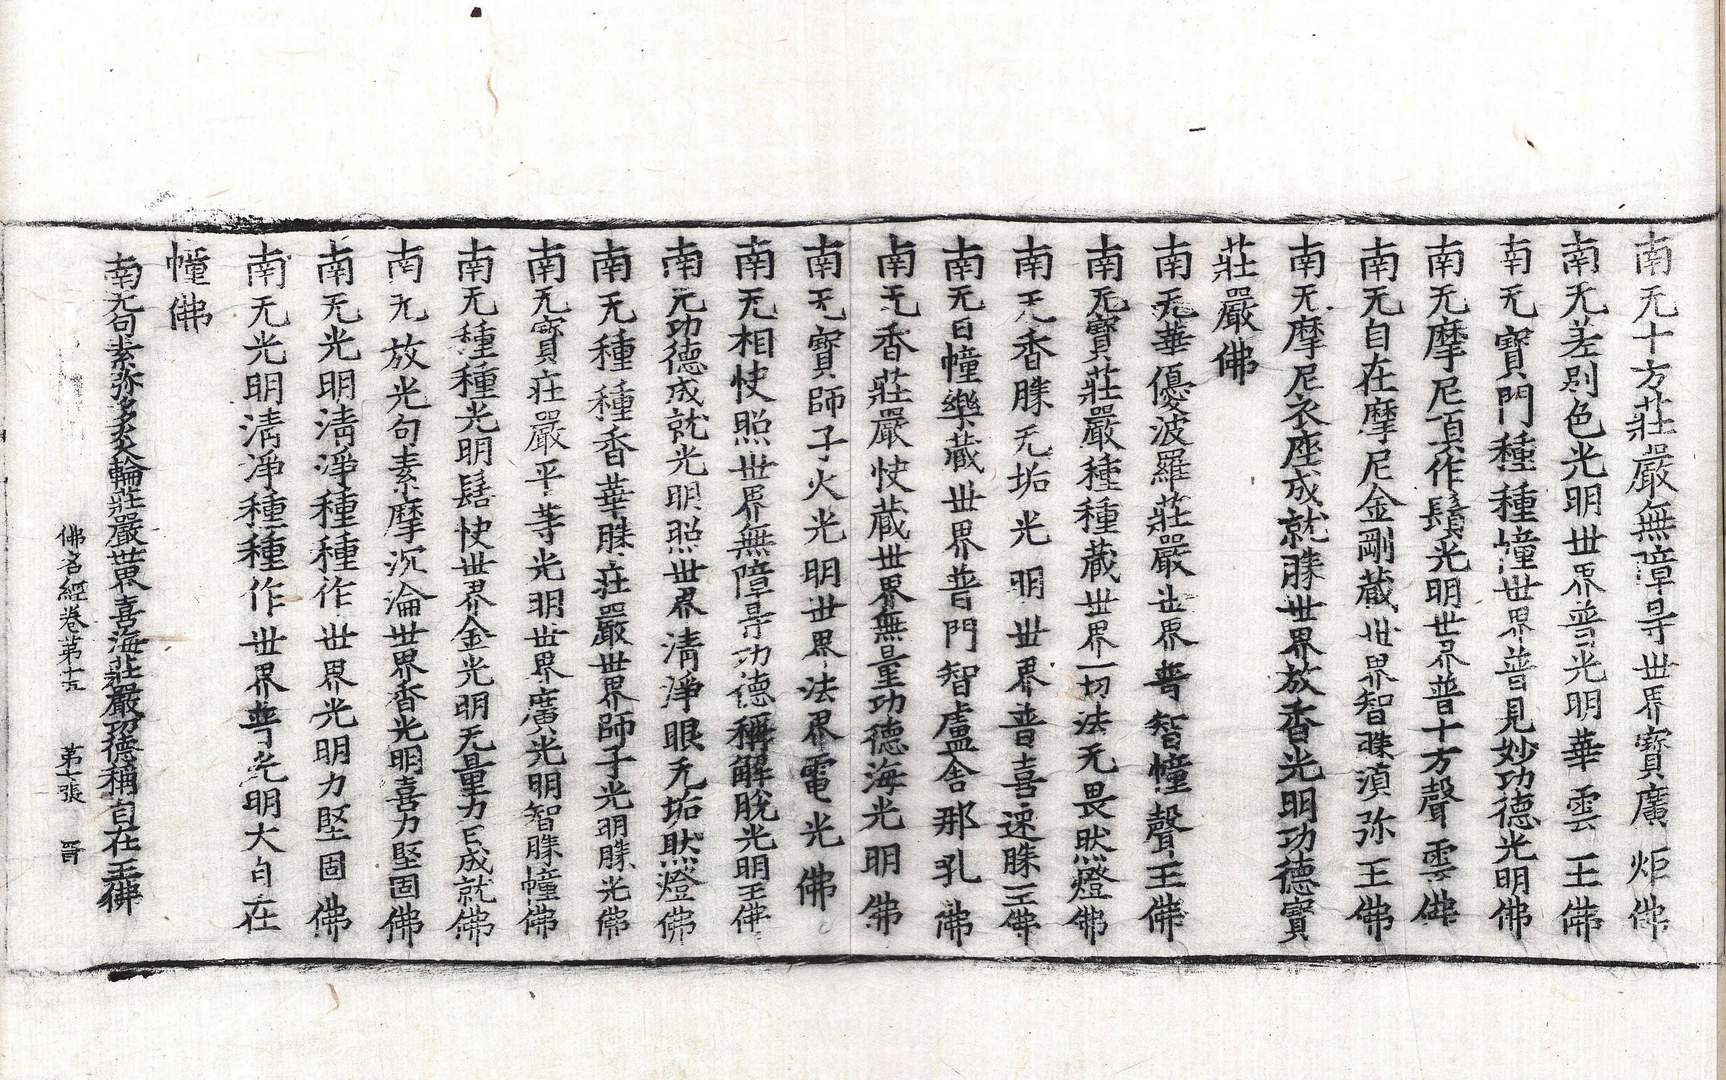 南无十方莊嚴無障㝵世界寶廣炬佛
南无差别色光明世界普光明華雲王佛
南无寶門種種幢世界普見妙功德光明佛
南无摩尼頂作鬚光明世界普十方聲雲佛
南无自在摩尼金剛藏世界智勝湏弥王佛
南无摩尼衣座成就勝世界放香光明功德寶
莊嚴佛
南无華優波羅莊嚴世界普智幢聲王佛
南无寶莊嚴種種藏世界一切法无畏然燈佛
南无香勝无垢光明世界普喜速勝王佛
南无日幢樂藏世界普門智盧舍那孔佛
南无香莊嚴快藏世界無量功德海光明佛
南无寶師子火光明世界法界電光佛
南无相快照世界無障㝵功德稱解脫光明王佛
南无功德成就光明照世界清淨眼无垢然燈佛
南无種種香華勝莊嚴世界師子光明勝光佛
南无寶莊嚴平等光明世界廣光明智勝幢佛
南无種種光明髻快世界金光明无量力日成就佛
南无放光句素摩沉淪世界香光明喜力堅固佛
南无光明清淨種種作世界光明力堅固佛
南无光明清淨種種作世界普光明大自在
幢佛
南无句素弥多炎輪莊嚴世界喜海莊嚴功德稱自在王佛
佛名經卷第十五 第七張 晉